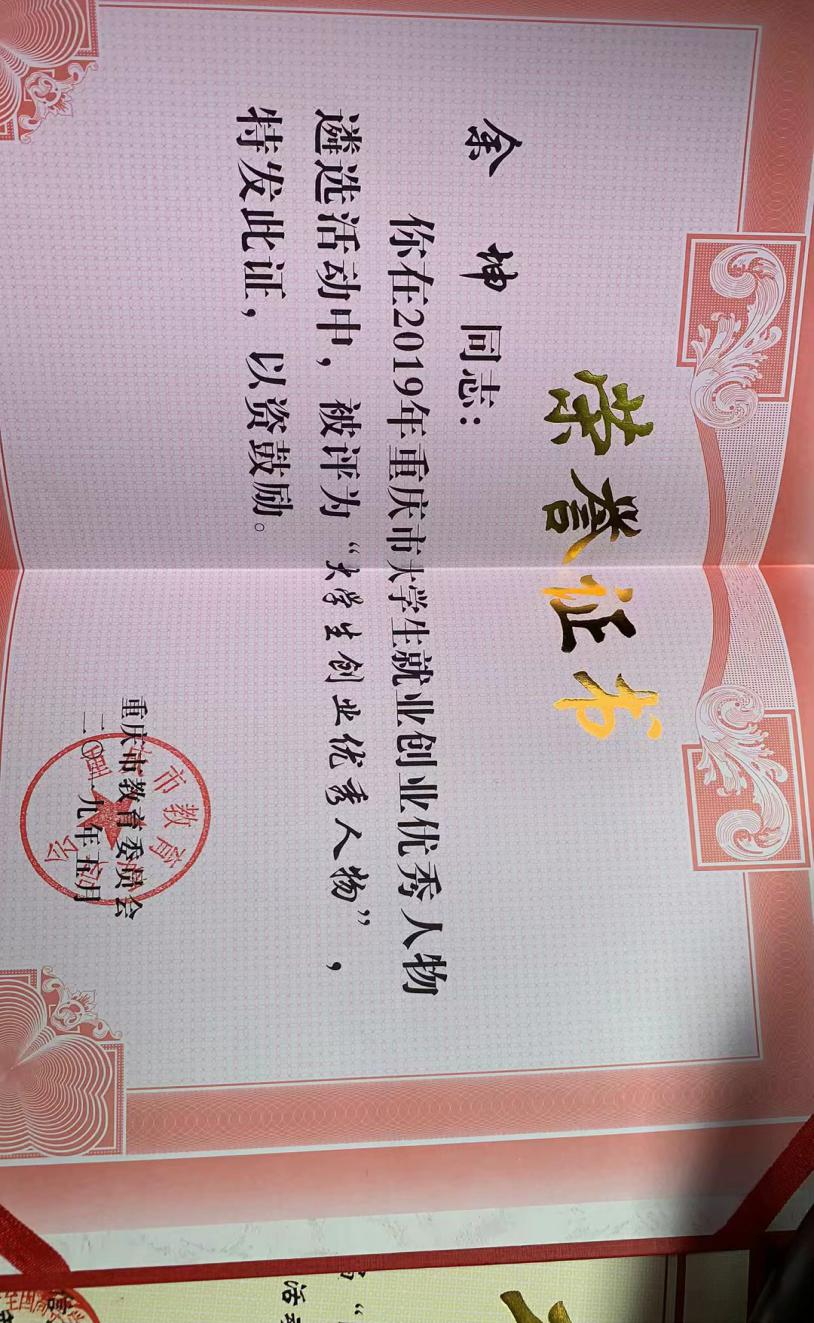 荣誉证书
余坤同志：
你在2019年重庆市大学生就业创业优秀人物
遴选活动中，被评为“大学生创业优秀人物”，
特发此证，以资鼓励。
重庆市教育委员会
二〇一九年五月
市教育
活